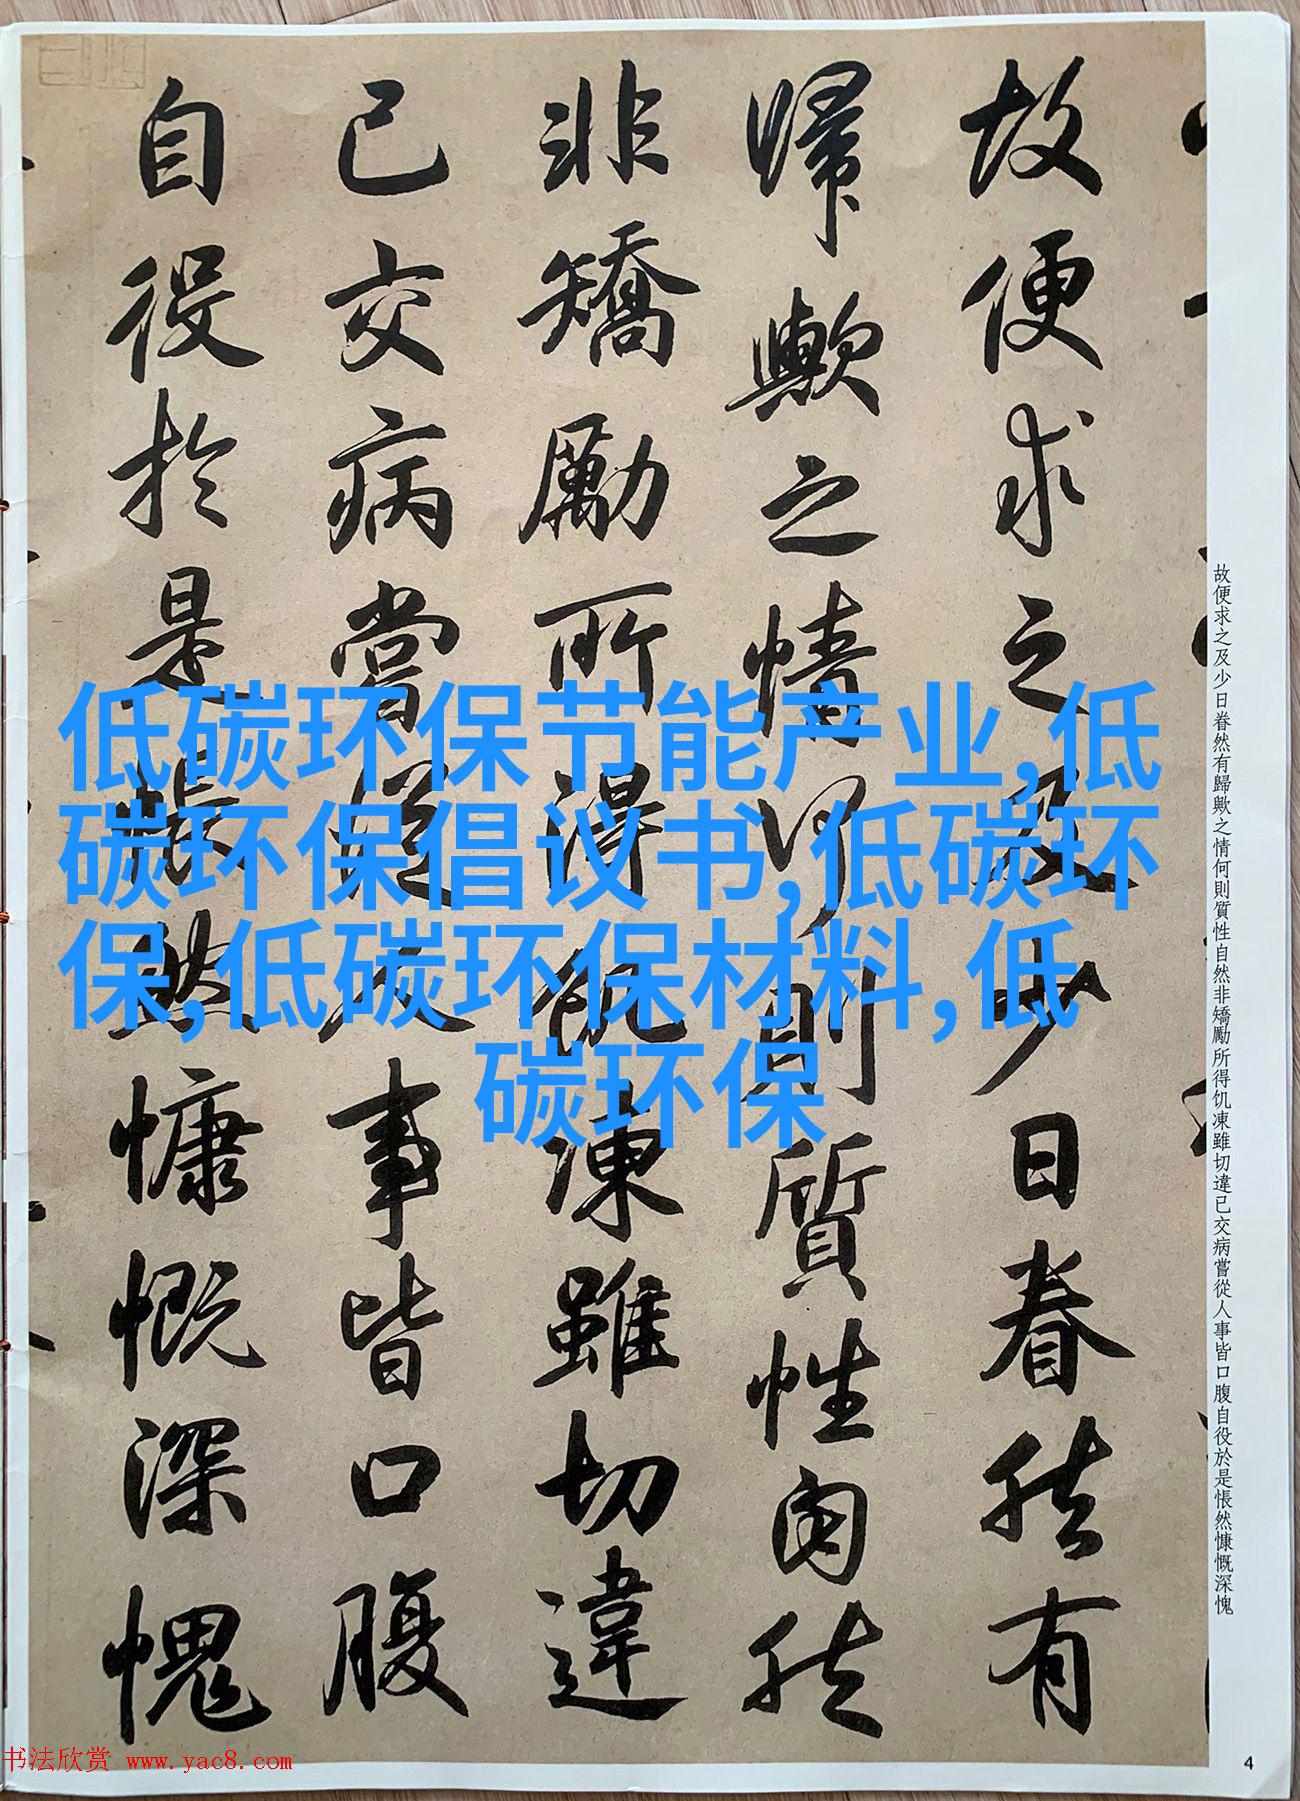 故便求之及少日眷然有
歸歟之情何則質性自然
非矯勵所得飢凍雖切違
己交病嘗從人事皆口腹
自役於是悵然慷慨深愧
故便求之及少日眷然有歸歟之情何則質性自然非矯勵所得饥凍雖切違已交病嘗從人事皆口腹自役於是悵然慷慨深愧
低碳环保节能产业,低
碳环保倡议书,低碳环
保,低碳环保材料,低
碳环保
书法欣赏 www.yac8.com
4